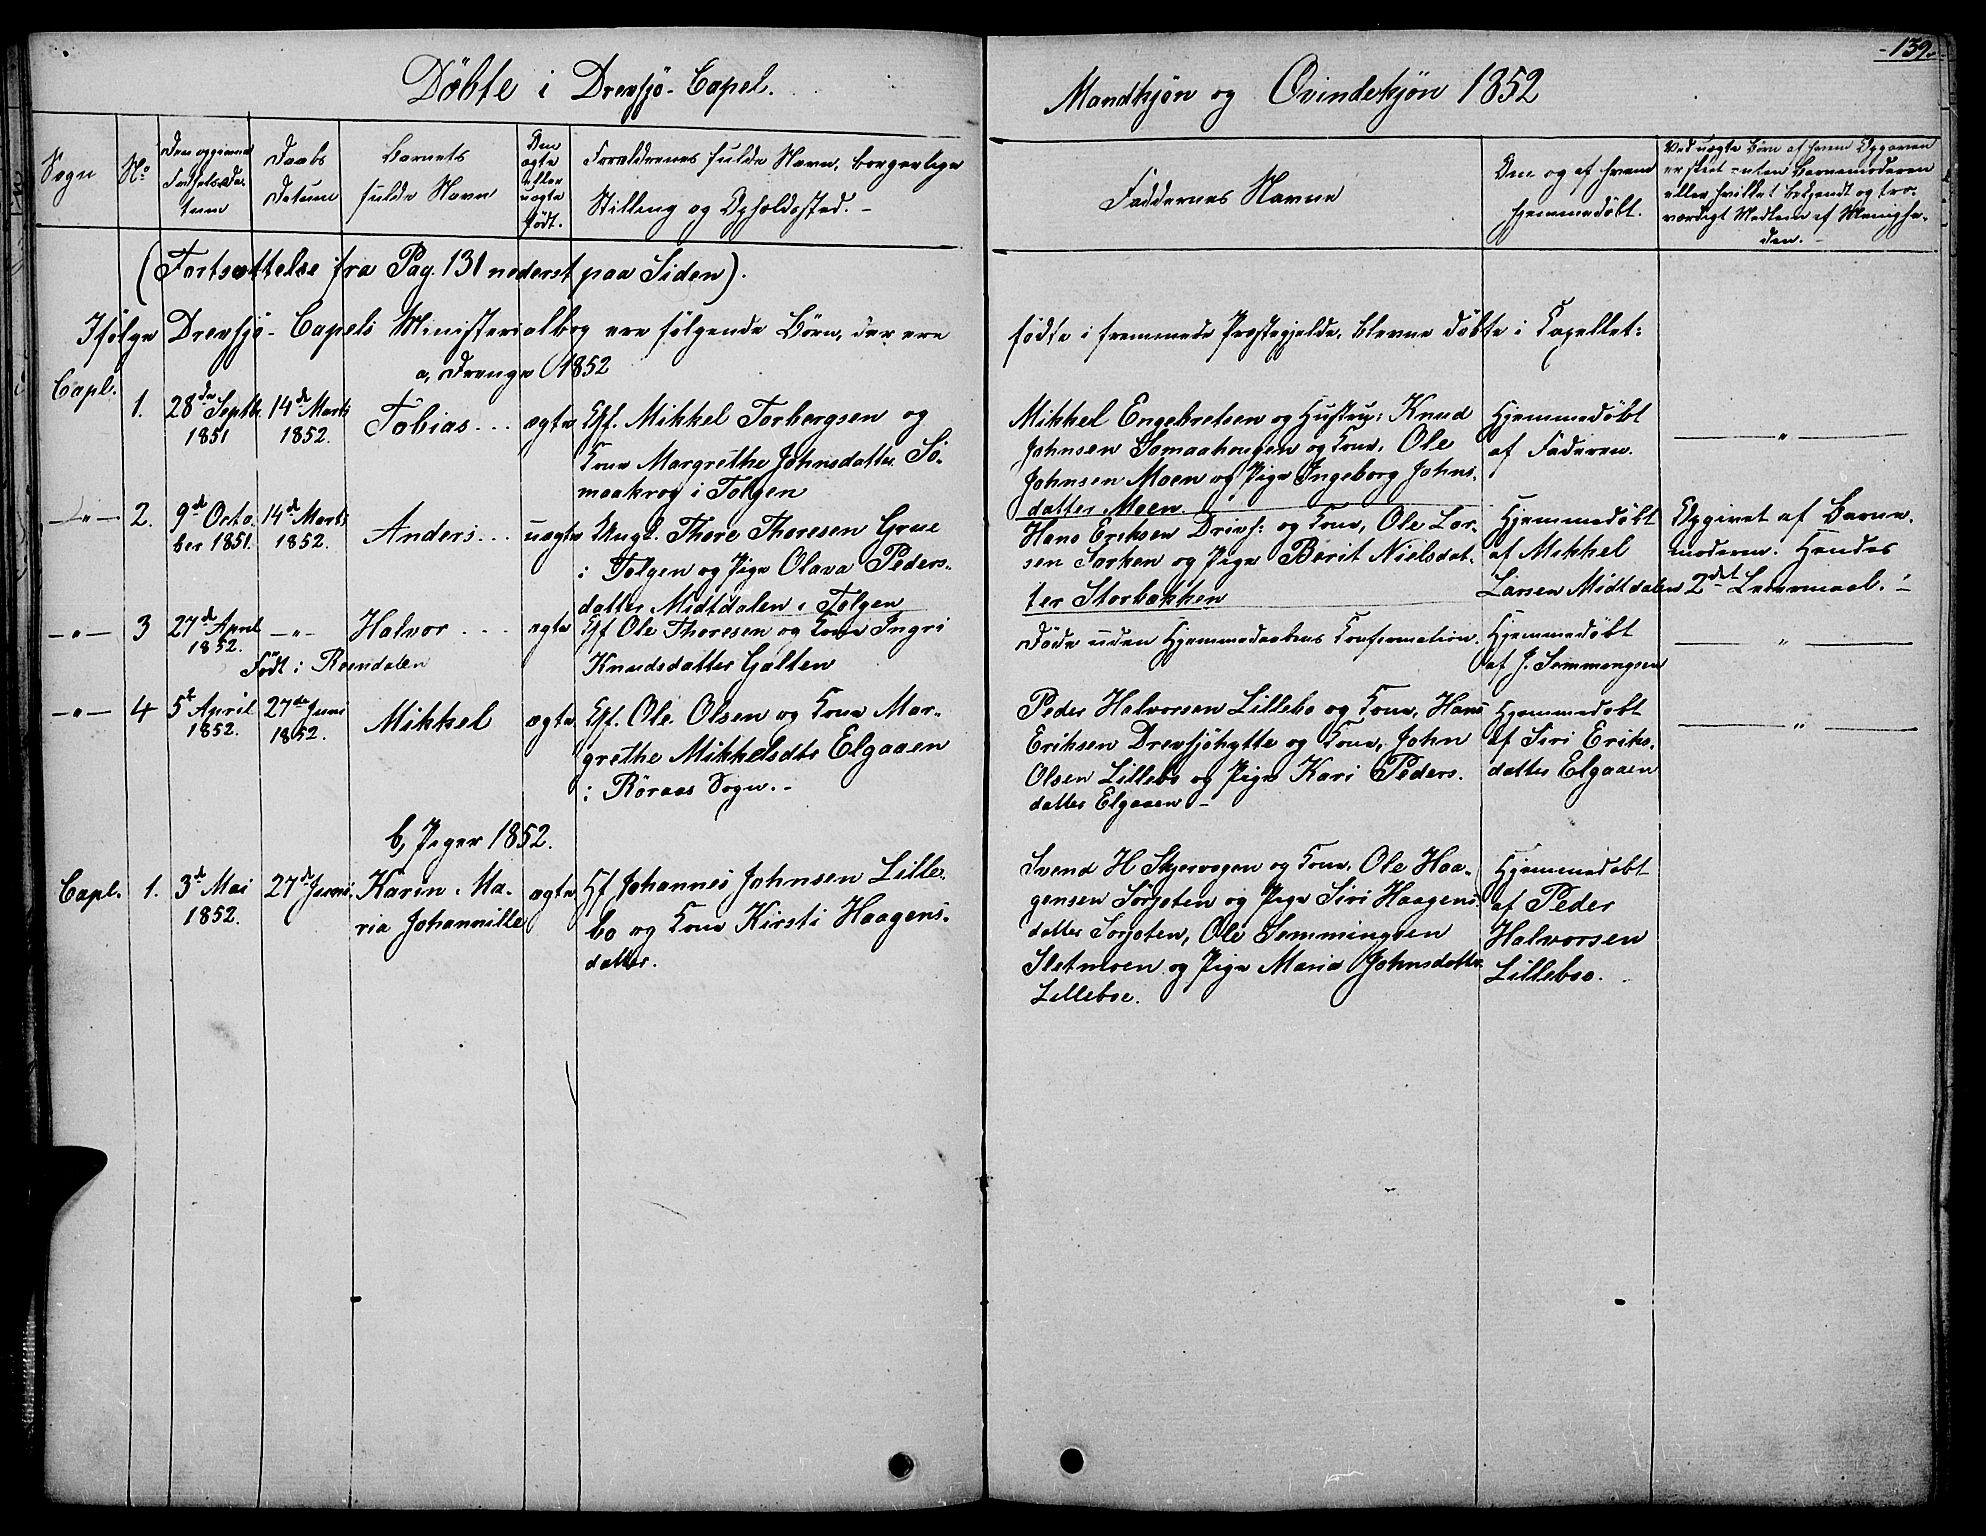 -139-
Döbte i Drevsjö-Capel.
Mandkjøn og Qvindekjøn 1852
Sogn
No
Den opgivne Fødselsdatum
Daabs Datum
Barnets fulde Navn
Den ægte eller uægte født.
Forældrenes fulde Navn, borgerlige Stilling og Opholdssted. -
Faddernes Navne
Om og af hvem hjemmedøbt.
Ved uægte Børn af hvem Opgaven er skeet - uten Barnemoderen eller hvilket bekjendt og troværdigt Medlem af Menigheden. -
(Fortsættelse fra Pag. 131 nederst paa Siden).
Ifølge Drevsjö-Capels Ministerialbog ere følgende Börn, der ere
fødte i fremmede Præstegjelde, blevne döbte i Capellet:
a, Drenge 1852
Capl.
1.
28de Septbr. 1851
14de Marts 1852.
Tobias
ægte
Gf. Mikkel Torbergsen og
Kone Margrethe Johnsdatter So-
maakrog i Tolgen
Mikkel Engebretsen og Hustru; Knud
Johnsen Somaahougen og Kone, Ole
Johnsen Moen og Pige Ingeborg Johns-
datter Moen.
Hjemmedöbt
af Faderen.
—"—
—"—
2.
9de Octo-
ber 1851.
14de Marts
1852.
Anders
uægte
Ungk. Thore Thoresen Grue
i Tolgen og Pige Olava Peders-
datter Midtdalen i Tolgen
Hans Eriksen Drevsj: og Kone, Ole Lar-
sen Sorken og Pige Berit Nielsdat-
ter Storbekken
Hjemmedöbt
af Mikkel
Larsen Midtdalen
Opgivet af Barne-
moderen. Hendes
2det Leiermaal. -
—"—
3
27de April
1852.
—"—
Født i Roendalen
Halvor
ægte
Gf Ole Thoresen og Kone Ingri
Knudsdatter Galten
Døde uden Hjemmedaabens Confirmation.
Hjemmedöbt
af J. Semmengsen
—"—
—"—
4
5te April
1852.
27de Juni
1852.
Mikkel
ægte
Gf. Ole Olsen og Kone Mar-
grethe Mikkelsdtr Elgaaen
i Röraas Sogn. -
Peder Halvorsen Lillebo og Kone, Hans
Eriksen Drevsjöhytte og Kone, John
Olsen Lillebo og Pige Kari Peders-
datter Elgaaen -
Hjemmedöbt
af Siri Eriks-
datter Elgaaen
—"—
b, Piger 1852.
Capl.
1.
3de Mai
1852.
27de Juni
Karin Ma-
ria Johannille
ægte
Gf Johannes Johnsen Lille-
bo og Kone Kirsti Haagens-
datter.
Svend H Skjervagen og Kone, Ole Haa-
gensen Sorjoten og Pige Siri Haagens
datter Sorjoten, Ole Semmingsen
Sletmoen og Pige Maria Johnsdatter
Lilleboe.
Hjemmedöbt
af Peder
Halvorsen
Lilleboe.